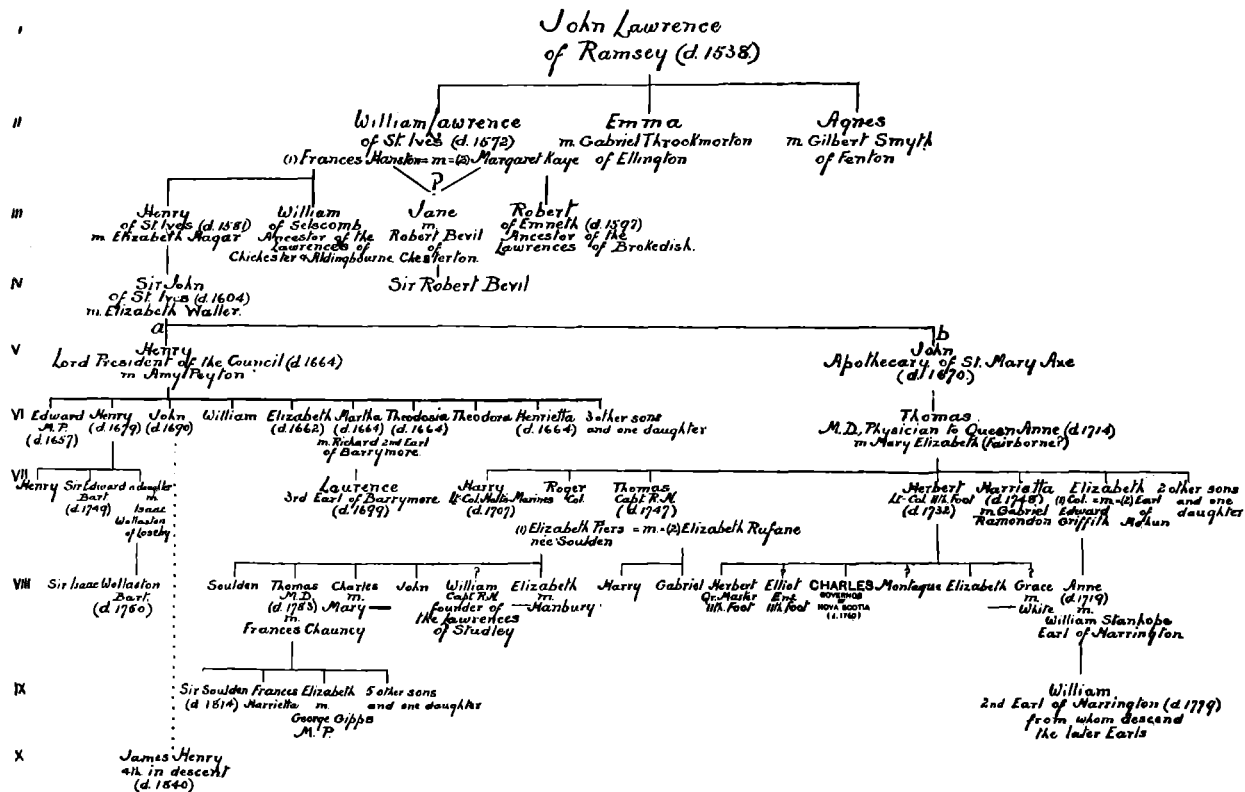 I
John Lawrence
of Ramsey (d. 1538.)
II
William Lawrence
of St. Ives (d. 1572)
(1) Frances Hanston = m = (2) Margaret Kaye
Emma
m Gabriel Throckmorton
of Ellington
Agnes
m Gilbert Smyth
of Fenton
?
III
Henry
of St Ives (d. 1581)
m Elizabeth Hagar
William
of Selscomb
Ancestor of the
Lawrences of
Chichester & Aldingbourne
Jane
m
Robert Bevil
of
Chesterton.
Robert
of Emneth (d. 1597)
Ancestor of the
Lawrences of Brokedish.
IV
Sir John
of St. Ives (d. 1604)
m. Elizabeth Waller.
Sir Robert Bevil
a
b
V
Henry
Lord President of the Council (d 1664)
m Amy Peyton
John
Apothecary of St. Mary Axe
(d. 1670.)
VI
Edward
M.P.
(d. 1657)
Henry
(d. 1679)
John
(d. 1690)
William
Elizabeth
(d. 1662)
Martha
(d. 1664)
m. Richard 2nd Earl
of Barrymore.
Theodosia
(d. 1664)
Theodora
Henrietta
(d. 1664)
3 other sons
and one daughter
Thomas
M.D., Physician to Queen Anne (d. 1714)
m Mary Elizabeth (Fairborne?)
VII
Henry
Sir Edward
Bart
(d. 1749)
a daughter
m
Isaac
Wollaston
of Loseby
Laurence
3rd Earl of Barrymore
(d. 1699)
Harry
Lt-Col. Holt's Marines
(d. 1707)
Roger
Col.
Thomas
Capt R.N.
(d. 1747)
(1) Elizabeth Piers = m = (2) Elizabeth Rufane
née Soulden
Herbert
Lt-Col 11th Foot
(d. 1732)
Harrietta
(d. 1748)
m Gabriel
Ramondon
Elizabeth
(1) Col. = m = (2) Earl
Edward of
Griffith Mohun
2 other sons
and one
daughter
VIII
Sir Isaac Wollaston
Bart.
(d. 1750)
Soulden
Thomas
M.D.
(d. 1783)
m.
Frances Chauncy
Charles
m.
Mary
John
?
William
Capt R.N.
founder of
the Lawrences
of Studley
Elizabeth
m.
Hanbury
Harry
Gabriel
Herbert
Qr. Master
11th. Foot
Elliot
Ens
11th Foot
CHARLES
GOVERNOR
OF
NOVA SCOTIA
(d. 1760)
?
Montague
Elizabeth
?
Grace
m.
White
Anne
(d. 1719)
m.
William Stanhope
Earl of Harrington
IX
Sir Soulden
(d 1814)
Frances
Harrietta
Elizabeth
m.
George Gipps
M.P.
5 other sons
and one daughter
William
2nd Earl of Harrington (d. 1779)
from whom descend
the later Earls
X
James Henry
4th in descent
(d. 1840)